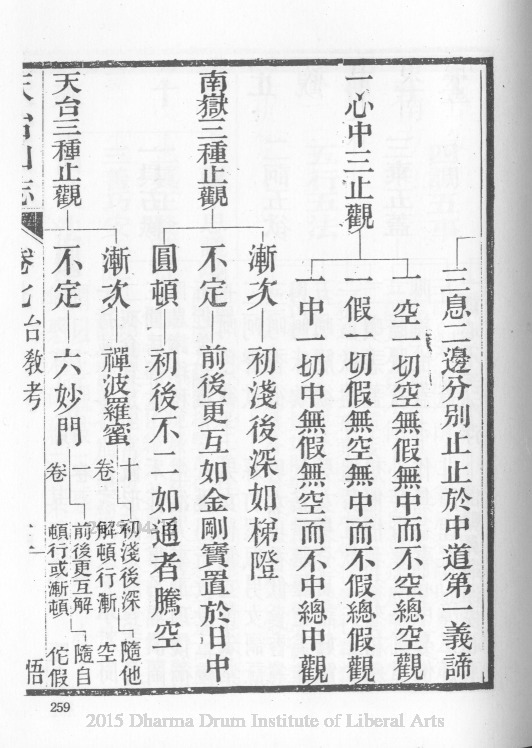 三息二邊分別止止於中道第一義諦
一心中三止觀
一空一切空無假無中而不空總空觀
一假一切假無空無中而不假總假觀
一中一切中無假無空而不中總中觀
南嶽三種止觀
漸次 初淺後深如梯隥
不定 前後更互如金剛寶置於日中
圓頓 初後不二如通者騰空
天台三種止觀
漸次 禪波羅蜜 十卷 初淺後深 解頓行漸 隨他空
不定 六妙門 一卷 前後更互解 頓行或漸頓 隨自佗假
天台山志 卷七 台教考
悟
259
2015 Dharma Drum Institute of Liberal Arts